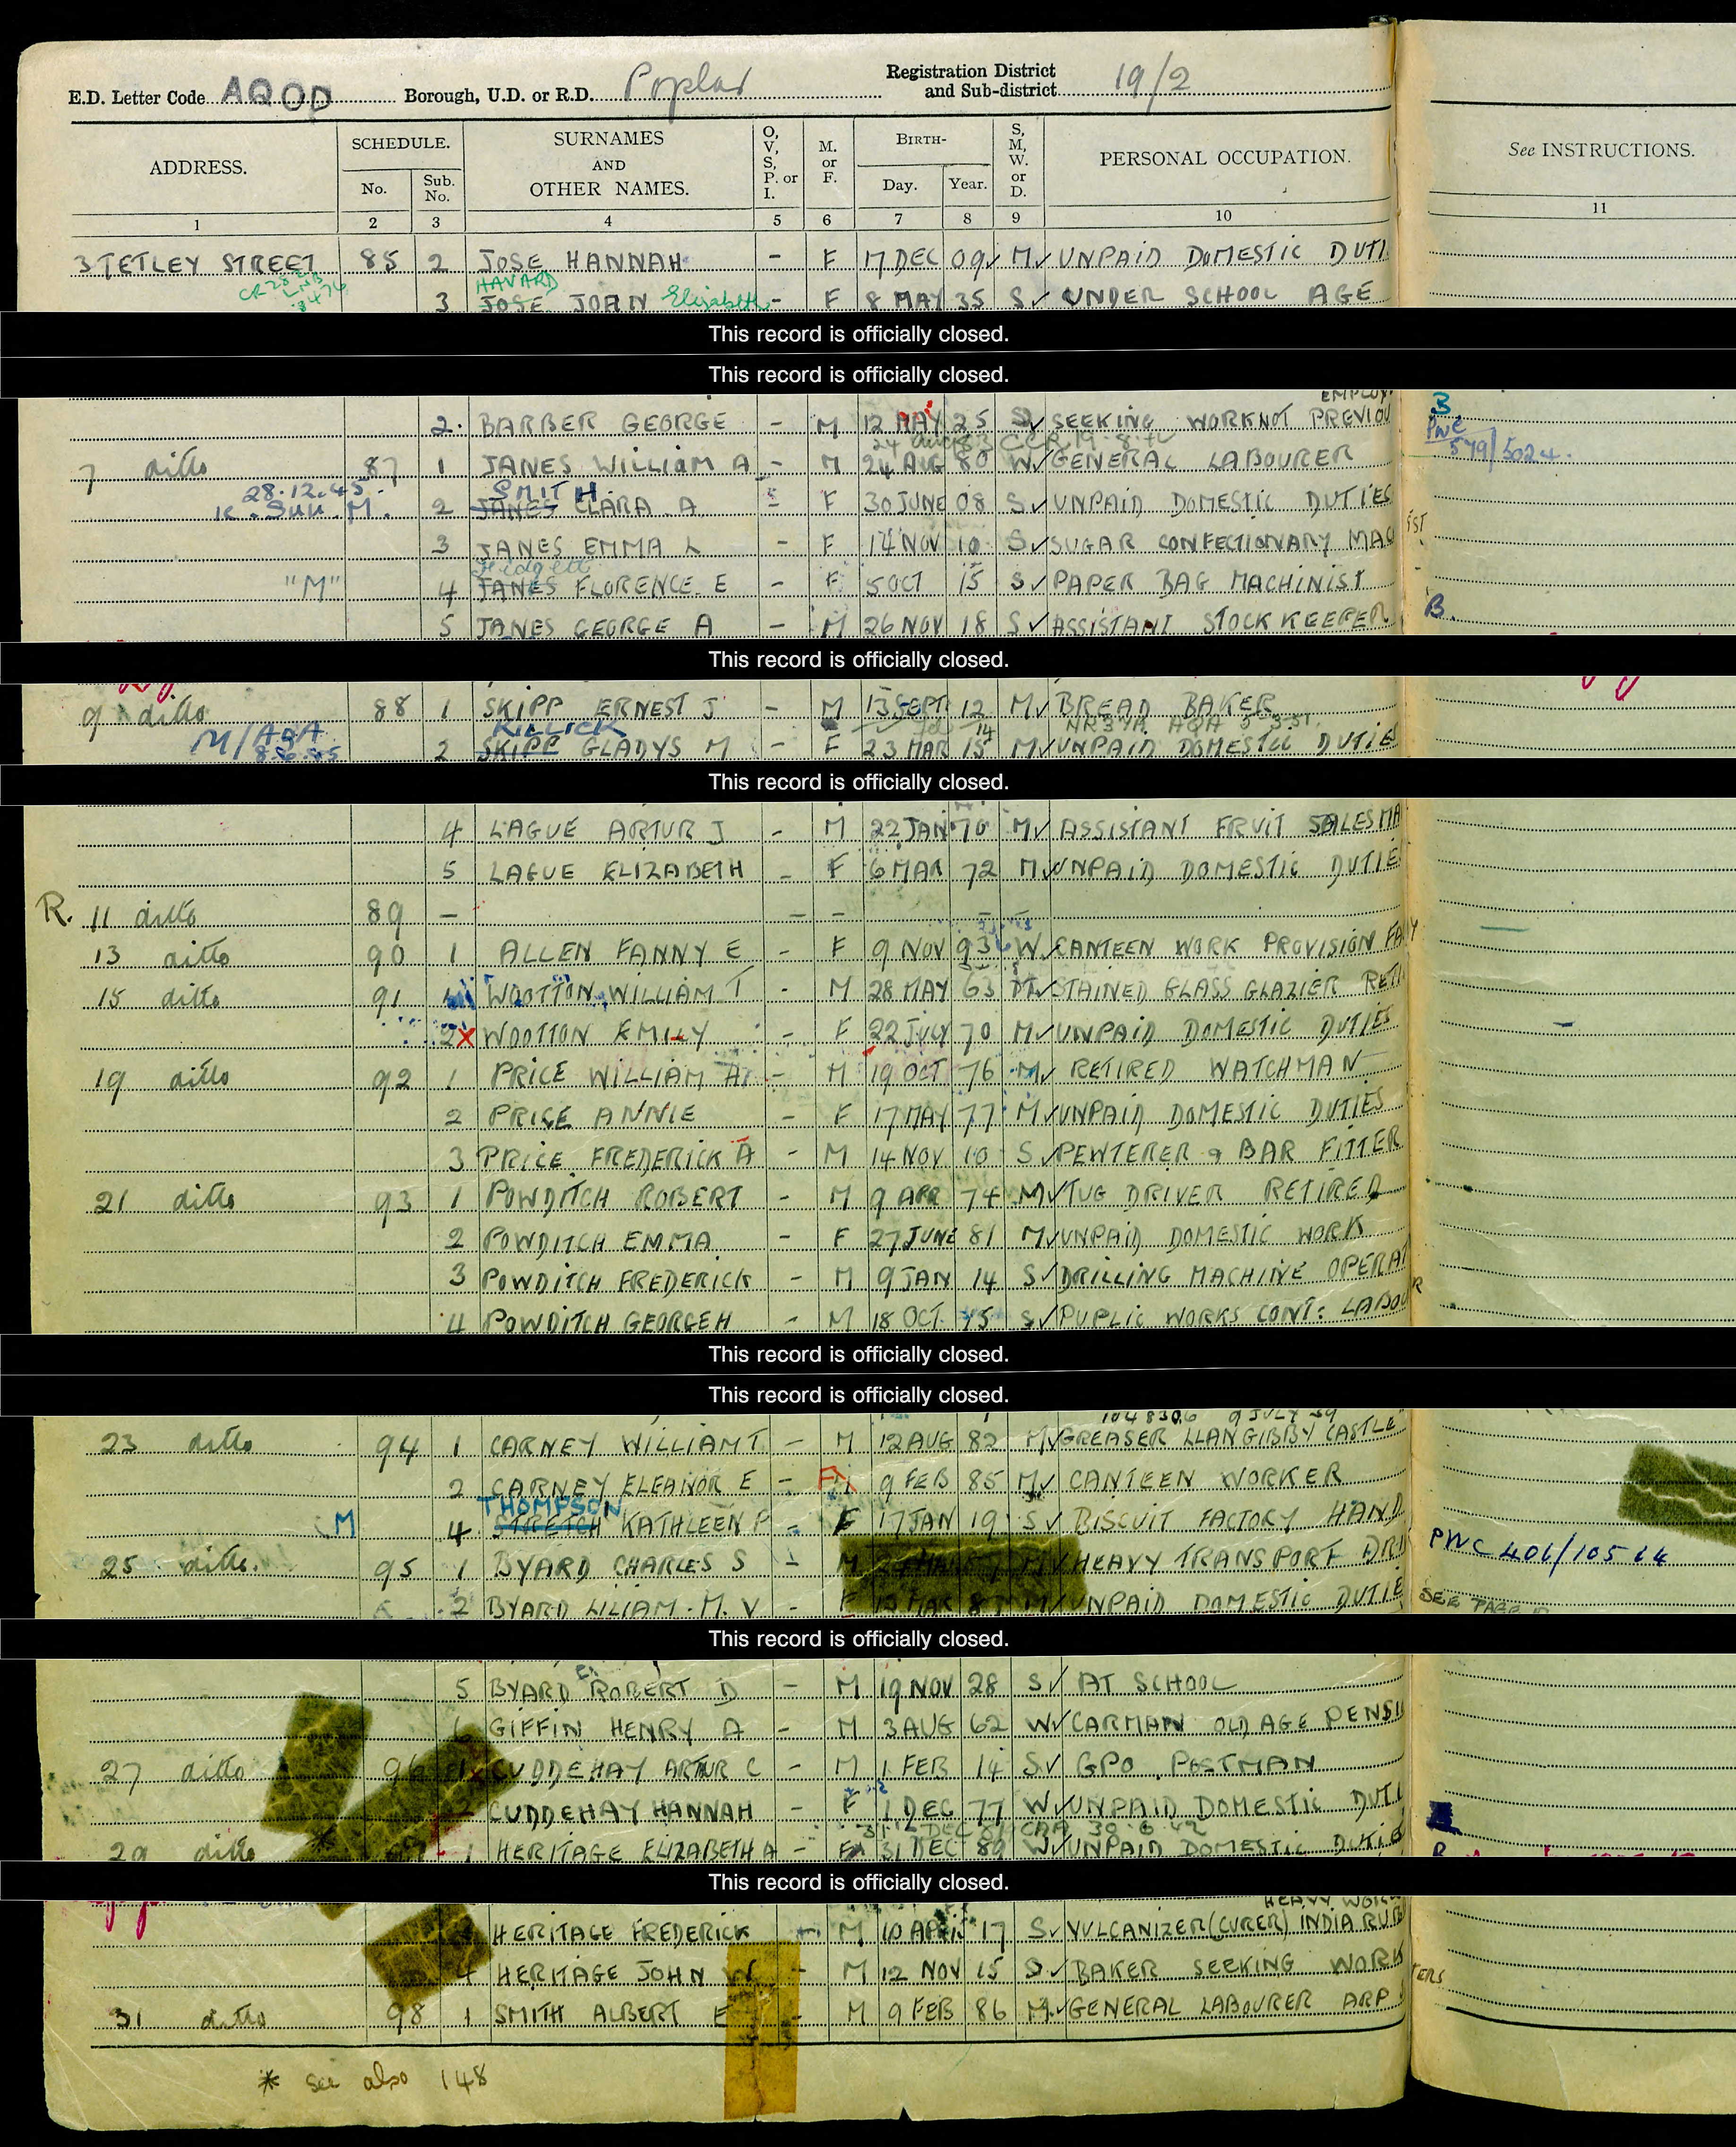 E.D. Letter Code AQOD Borough, U.D. or R.D. Poplar Registration District and Sub-district 19/2
ADDRESS. SCHEDULE. SURNAMES AND OTHER NAMES. O, V, S, P. or I. M. or F. BIRTH- S, M, W. or D. PERSONAL OCCUPATION. See INSTRUCTIONS.
No. Sub. No. Day. Year.
1 2 3 4 5 6 7 8 9 10 11
3 TETLEY STREET 85 2 JOSE HANNAH - F 17 DEC 09 M UNPAID DOMESTIC DUTI
HAVARD
3 JOSE JOAN Elizabeth - F 8 MAY 35 S UNDER SCHOOL AGE
This record is officially closed.
This record is officially closed.
EMPLOY.
2 BARBER GEORGE - M 12 MAY 25 S SEEKING WORK NOT PREVIOU
PWC 579/5024.
7 ditto 87 1 JANES WILLIAM A - M 24 AUG 80 W GENERAL LABOURER
28.12.45. SMITH
2 JANES CLARA A - F 30 JUNE 08 S UNPAID DOMESTIC DUTIES
3 JANES EMMA L - F 14 NOV 10 S SUGAR CONFECTIONARY MAC
"M" 4 JANES FLORENCE E - F 5 OCT 15 S PAPER BAG MACHINIST
5 JANES GEORGE A - M 26 NOV 18 S ASSISTANT STOCK KEEPER B.
This record is officially closed.
9 ditto 88 1 SKIPP ERNEST J - M 13 SEPT 12 M BREAD BAKER
KILLICK
2 SKIPP GLADYS M - F 23 MAR 15 M UNPAID DOMESTIC DUTIE
This record is officially closed.
4 LAGUE ARTUR J - M 22 JAN 70 M ASSISTANT FRUIT SALESMA
5 LAGUE ELIZABETH - F 6 MAR 72 M UNPAID DOMESTIC DUTIE
R. 11 ditto 89 - - - - -
13 ditto 90 1 ALLEN FANNY E - F 9 NOV 93 W CANTEEN WORK PROVISION
15 ditto 91 WOOTTON WILLIAM T - M 28 MAY 63 STAINED GLASS GLAZIER RETI
2 X WOOTTON EMILY - F 22 JULY 70 M UNPAID DOMESTIC DUTIES
19 ditto 92 1 PRICE WILLIAM H - M 19 OCT 76 M RETIRED WATCHMAN
2 PRICE ANNIE - F 17 MAY 77 M UNPAID DOMESTIC DUTIES
3 PRICE FREDERICK A - M 14 NOV 10 S PEWTERER & BAR FITTER
21 ditto 93 1 POWDITCH ROBERT - M 9 APR 74 M TUG DRIVER RETIRED
2 POWDITCH EMMA - F 27 JUNE 81 M UNPAID DOMESTIC WORK
3 POWDITCH FREDERICK - M 9 JAN 14 S DRILLING MACHINE OPERAT
4 POWDITCH GEORGE H - M 18 OCT 15 S PUBLIC WORKS CONT: LABOU
This record is officially closed.
This record is officially closed.
9 JULY 39
23 ditto 94 1 CARNEY WILLIAM T - M 12 AUG 82 M GREASER LLANGIBBY CASTLE
2 CARNEY ELEANOR E - F 9 FEB 85 M CANTEEN WORKER
THOMPSON
M 4 STRETCH KATHLEEN P - F 17 JAN 19 S BISCUIT FACTORY HAND
25 ditto 95 1 BYARD CHARLES S - M HEAVY TRANSPORT DRI PWC 401/10514
2 BYARD LILIAM M. V - F MAR M UNPAID DOMESTIC DUTIE SEE PAGE
This record is officially closed.
5 BYARD ROBERT D - M 19 NOV 28 S AT SCHOOL
6 GIFFIN HENRY A - M 3 AUG 62 W CARMAN OLD AGE PENSI
27 ditto 96 1 CUDDEHAY ARTUR C - M 1 FEB 14 S GPO POSTMAN
2 CUDDEHAY HANNAH - F 1 DEC 77 W UNPAID DOMESTIC DUTI
29 ditto * 97 1 HERITAGE ELIZABETH A - F 31 DEC 82 W UNPAID DOMESTIC DUTIE
This record is officially closed.
HEAVY WORK
HERITAGE FREDERICK - M 10 APRIL 17 S VULCANIZER (CURER) INDIA RUB
4 HERITAGE JOHN W - M 12 NOV 15 S BAKER SEEKING WORK
31 ditto 98 1 SMITH ALBERT E - M 9 FEB 86 M GENERAL LABOURER ARP
* see also 148